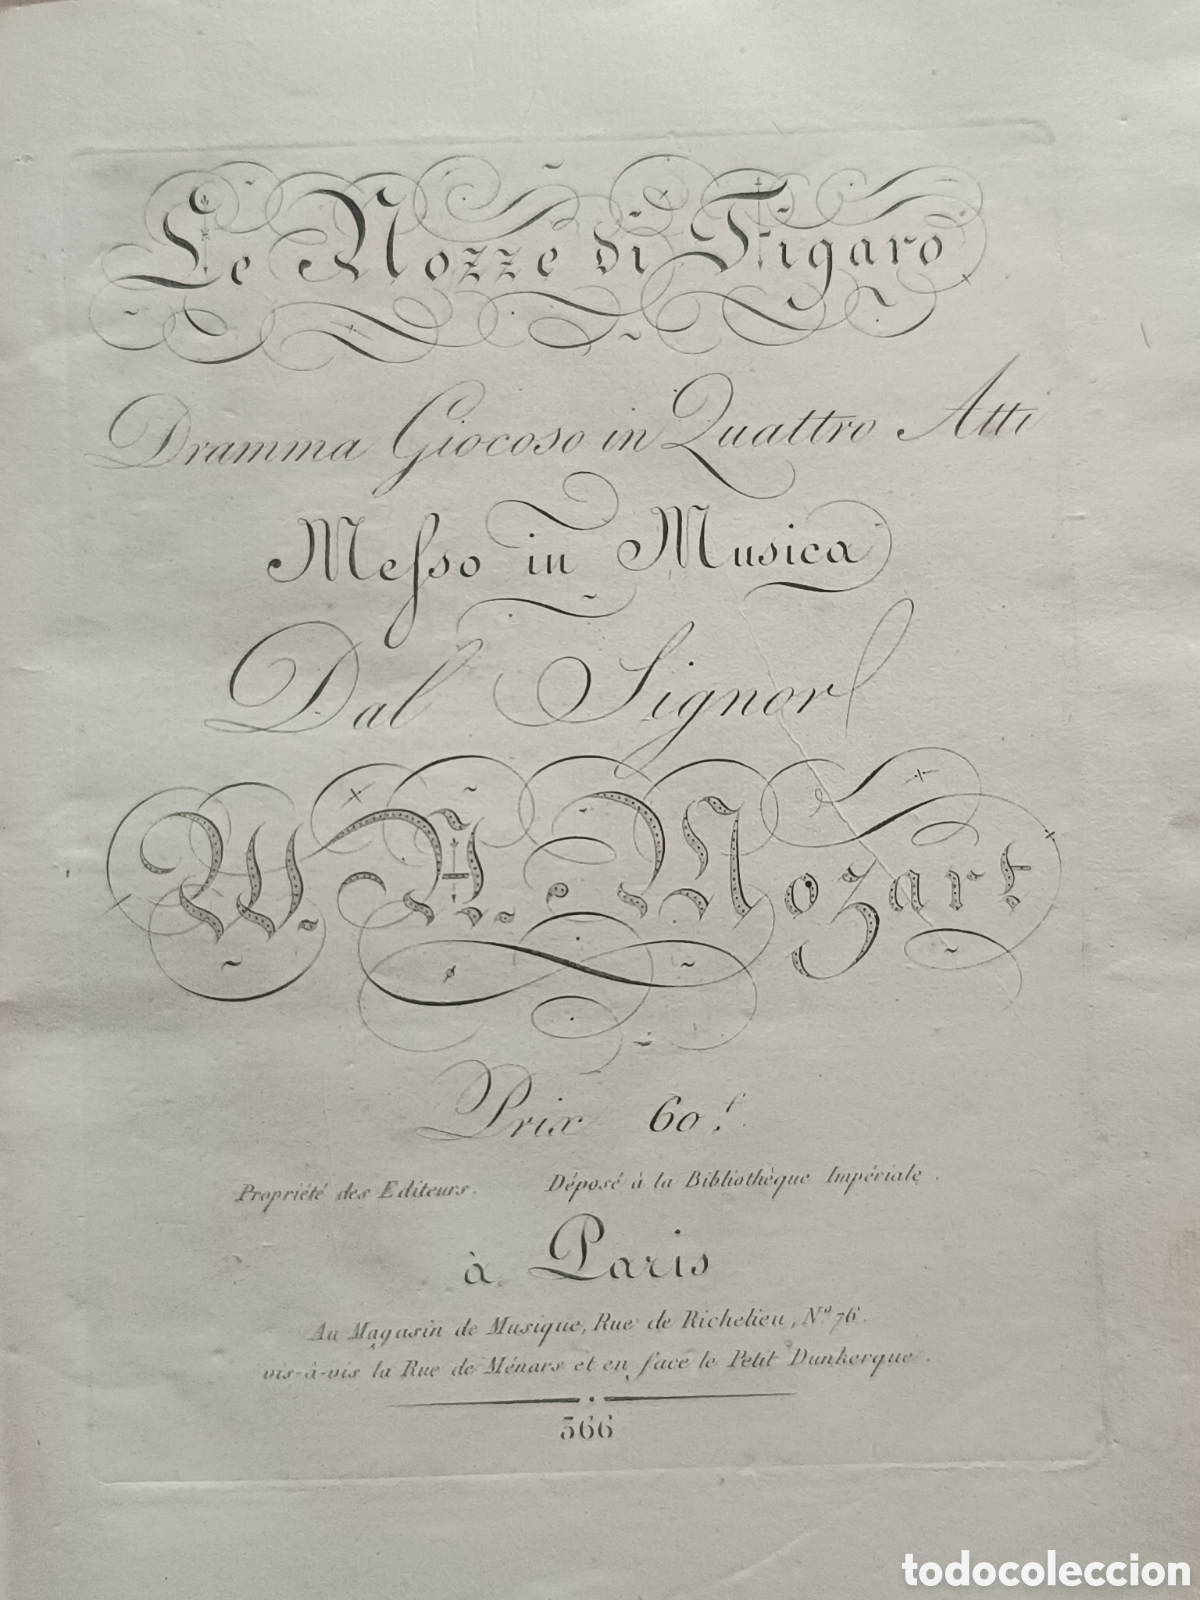 Le Nozze di Figaro
Dramma Giocoso in Quattro Atti
Meſso in Musica
Dal Signor
W. A. Mozart
Prix 60.f
Propriété des Editeurs. Déposé à la Bibliothèque Impériale.
à Paris
Au Magasin de Musique, Rue de Richelieu, Nº 76.
vis-à-vis la Rue de Ménars et en face le Petit Dunkerque.
366
todocoleccion